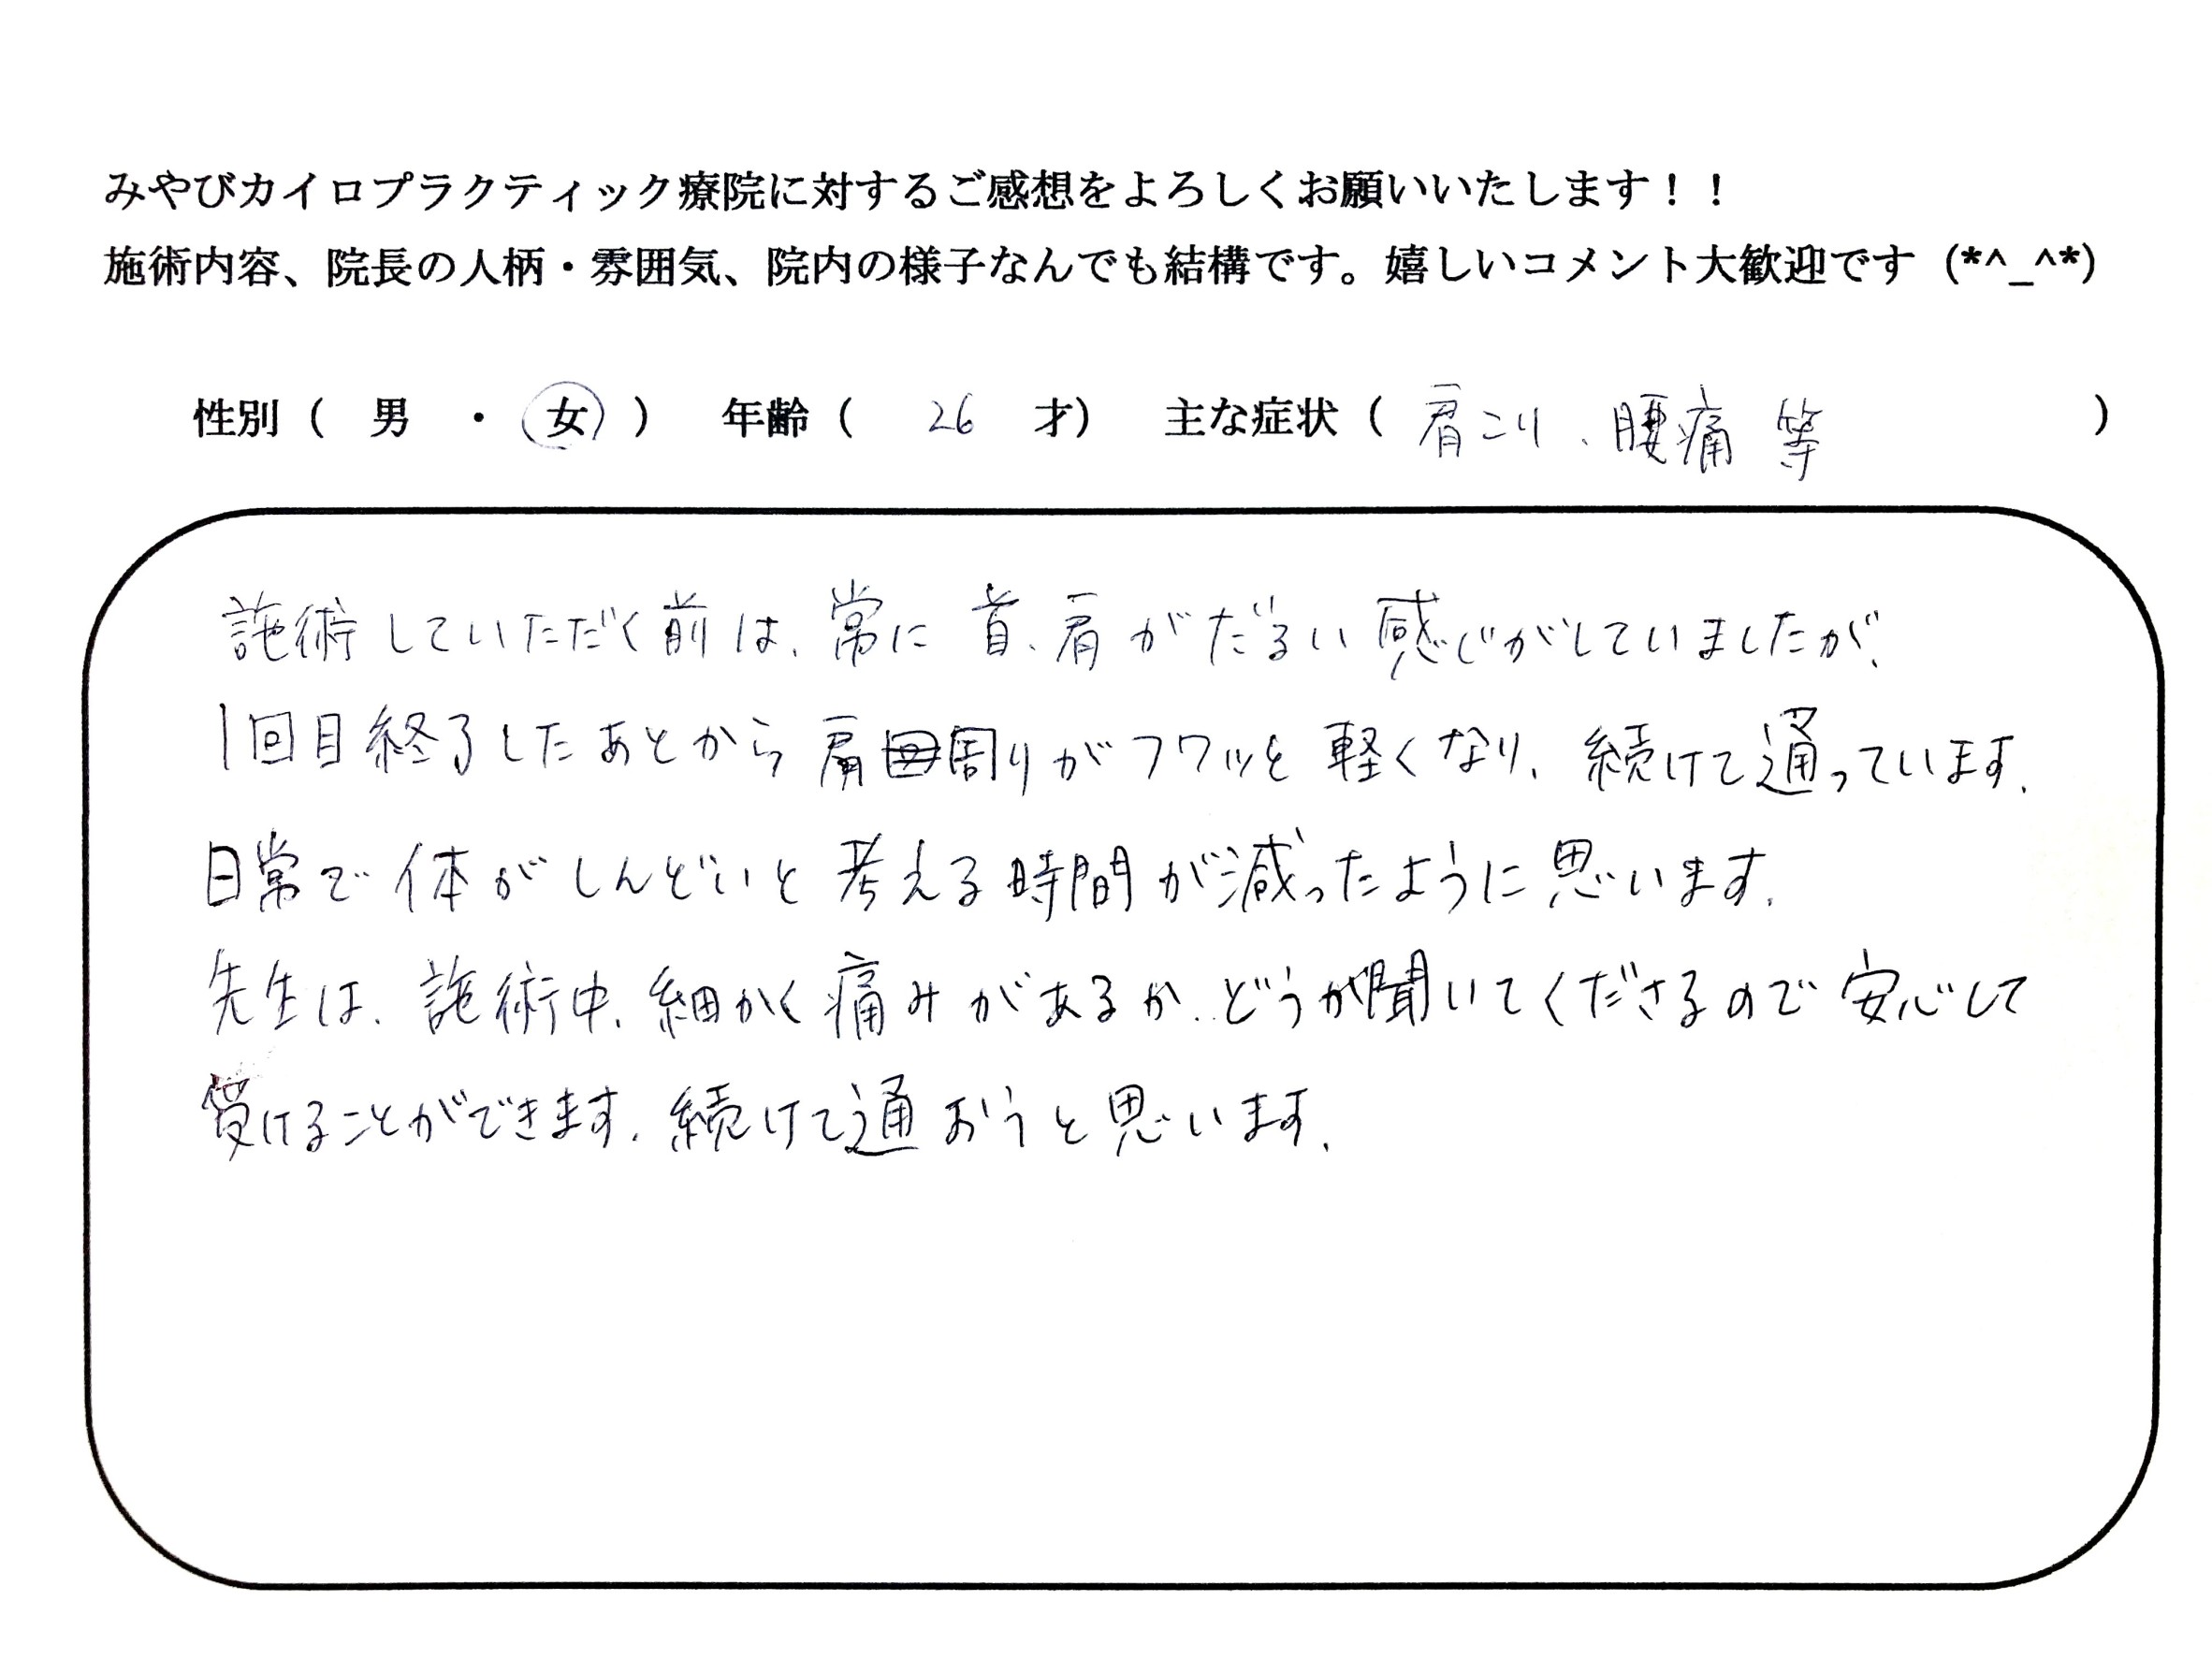 みやびカイロプラクティック療院に対するご感想をよろしくお願いいたします！！
施術内容、院長の人柄・雰囲気、院内の様子なんでも結構です。嬉しいコメント大歓迎です (*^_^*)
性別（ 男 ・ 女 ） 年齢（ 26 才） 主な症状（ 肩こり、腰痛 等 ）
施術していただく前は、常に首、肩がだるい感じがしていましたが、
1回目終了したあとから肩周りがフワッと軽くなり、続けて通っています。
日常で体がしんどいと考える時間が減ったように思います。
先生は、施術中、細かく痛みがあるか、どうか聞いてくださるので安心して
受けることができます。続けて通おうと思います。